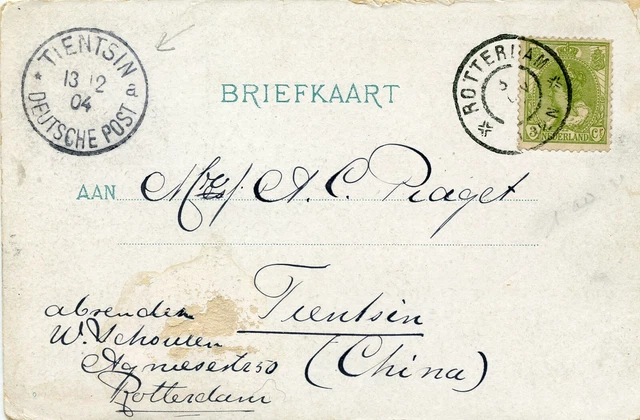 TIENTSIN
13 12
04
a
DEUTSCHE POST
ROTTERDAM
3 NEDERLAND Ct
BRIEFKAART
AAN A. C. Piaget
Tientsin
(China)
absender
W. Schouten
Agniesestr 50
Rotterdam